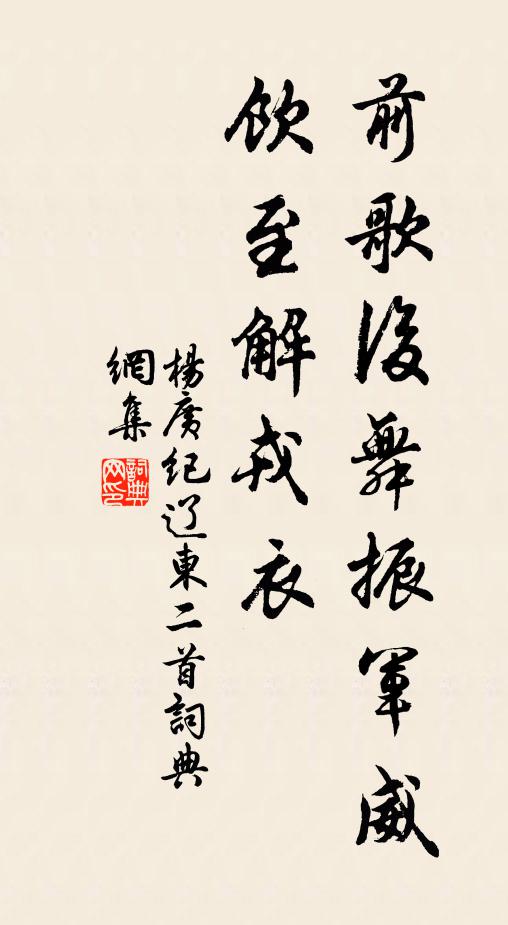 前歌後舞振軍威
飲至解戎衣
楊廣紀辽東二首詞典
網集
詞典
网印